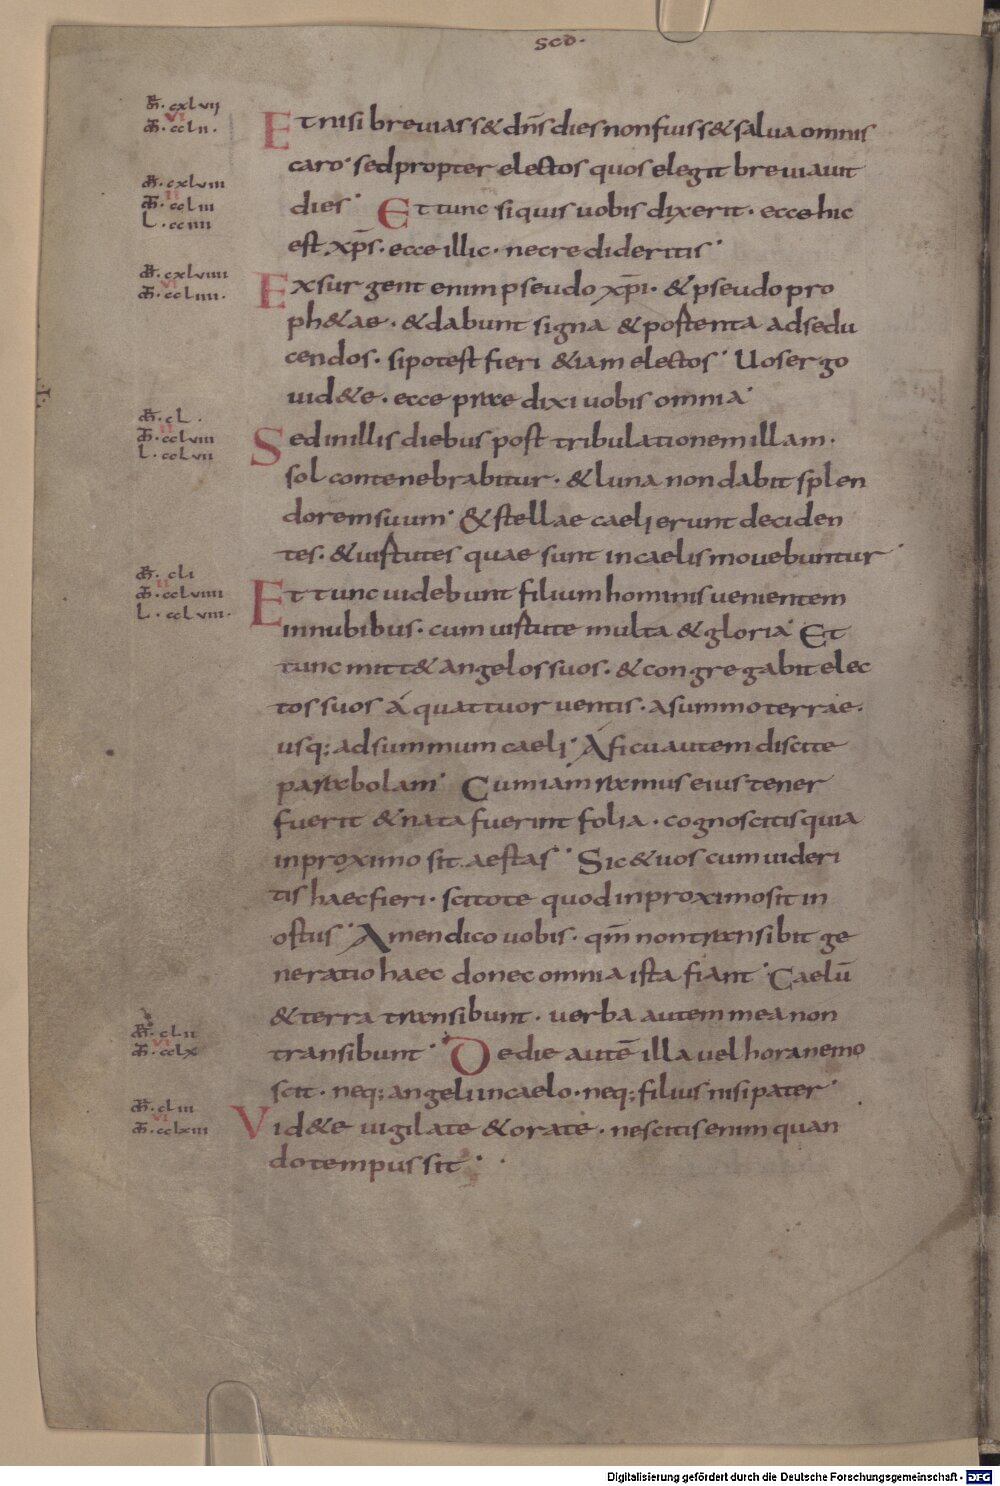 scd·
mr̄·cxlvii
vi
mt̄·cclii·
Et nisi breuiass& dn̄s dies non fuiss& salua omnis
caro· sed propter electos quos elegit breuiauit
mr̄·cxlviii
ii
mt̄·ccliii
L·cciiii
dies· Et tunc siquis uobis dixerit· ecce hic
est xp̄s· ecce illic· ne credideritis·
mr̄·cxlviiii
vi
mt̄·ccliiii·
Exsurgent enim pseudo xp̄i· & pseudo pro
ph&ae· & dabunt signa & portenta ad sedu
cendos· si potest fieri &iam electos· Uos ergo
uid&e· ecce praedixi uobis omnia·
mr̄·cL·
ii
mt̄·cclviii
L·ccLvii
Sed in illis diebus post tribulationem illam·
sol contenebrabitur· & luna non dabit splen
dorem suum· & stellae caeli erunt deciden
tes· & uirtutes quae sunt in caelis mouebuntur·
mr̄·cli
ii
mt̄·ccLviiii
L·ccLviii·
Et tunc uidebunt filium hominis uenientem
in nubibus· cum uirtute multa & gloria· Et
tunc mitt& angelos suos· & congregabit elec
tos suos á quattuor uentis· a summo terrae·
usq; ad summum caeli· A ficu autem discite
parabolam· Cum iam ramus eius tener
fuerit & nata fuerint folia· cognoscitis quia
in proximo sit aestas· Sic & uos cum uideri
tis haec fieri· scitote quod in proximo sit in
ostiis· Amen dico uobis· qm̄ non transibit ge
neratio haec donec omnia ista fiant· Caelū
& terra transibunt· uerba autem mea non
mr̄·cLii
vi
mt̄·ccLx
transibunt· De die autē illa uel hora nemo
scit· neq; angeli in caelo· neq; filius nisi pater·
mr̄·cLiii
vi
mt̄·cclxiii
Vid&e uigilate & orate· nescitis enim quan
do tempus sit·
Digitalisierung gefördert durch die Deutsche Forschungsgemeinschaft · DFG